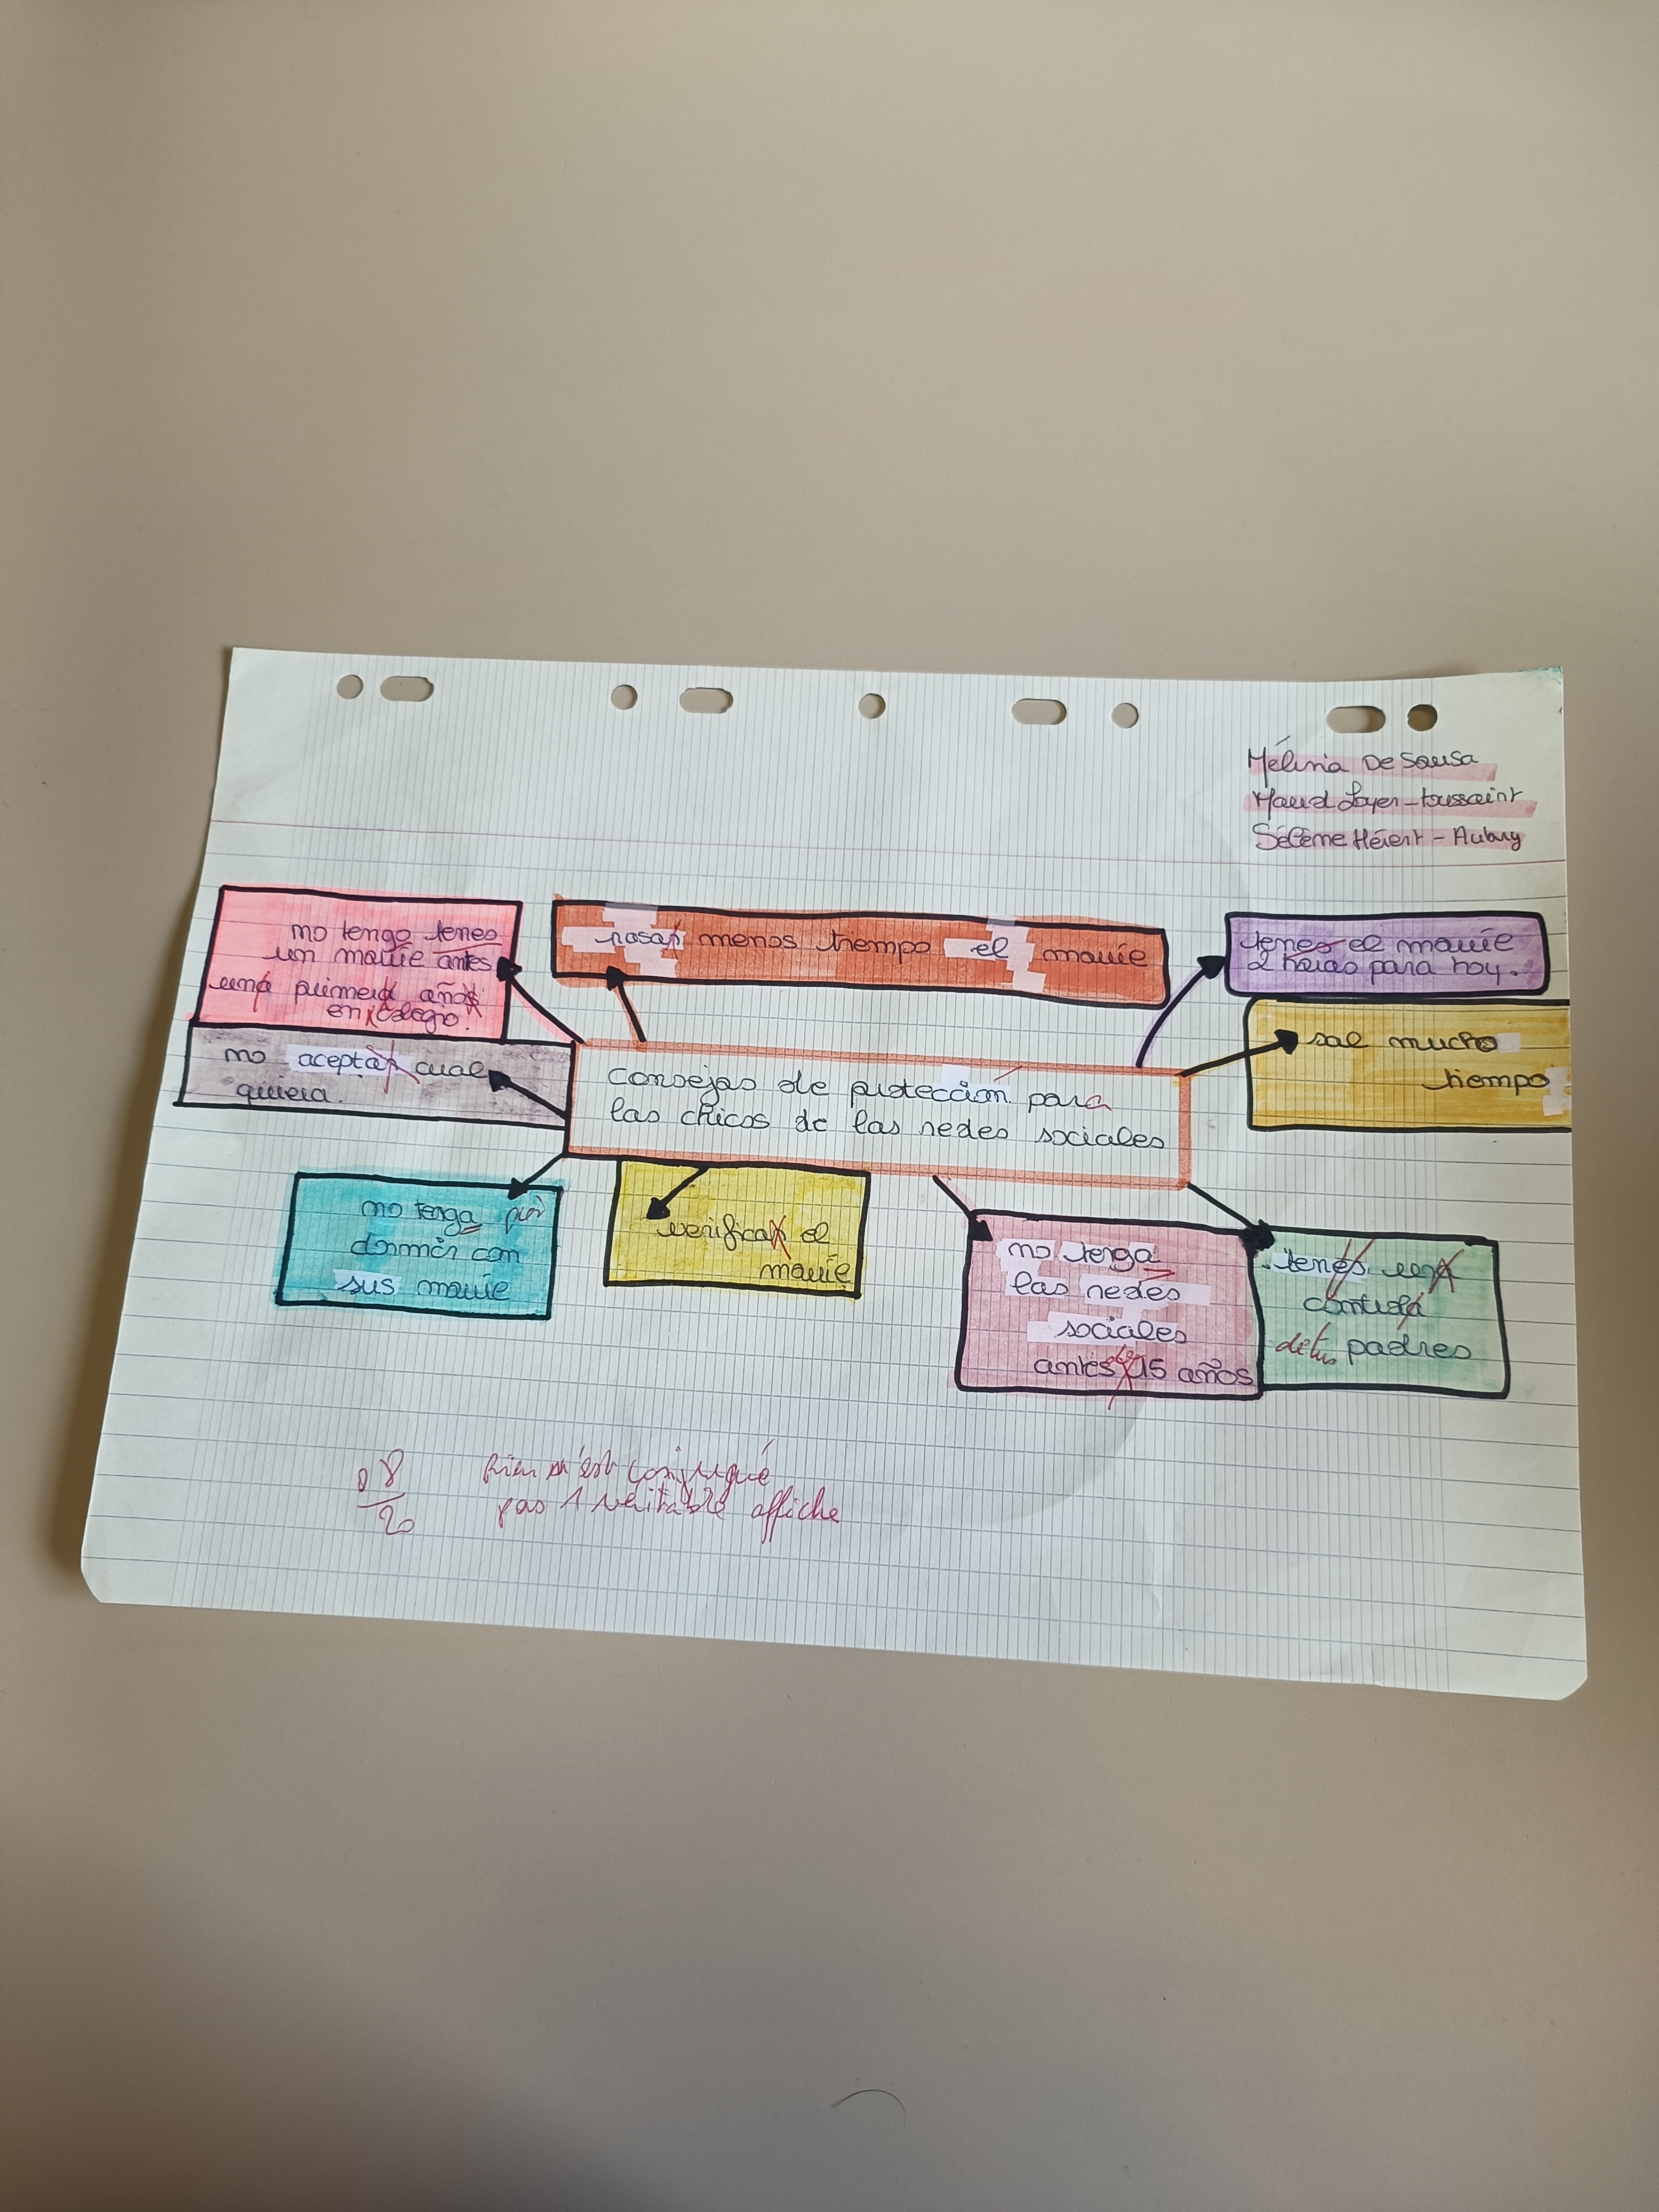 Mélina De Sousa
Maud Loyer-toussaint
Sélène Hérent - Aubry
no tengo tenes
un mauie antes
una primera años
en colegio.
pasar menos tiempo el mauie
tenes el mauie
2 horas para hoy.
sal mucho
tiempo
no aceptar cual
quiera.
consejas de protección para
las chicos de las redes sociales
no tenga por
dormir con
sus mauie
verificar el
mauie
no tenga
las redes
sociales
antes 15 años
tenés
de tus padres
08
20
Rien n'est conjugué
pas 1 véritable affiche